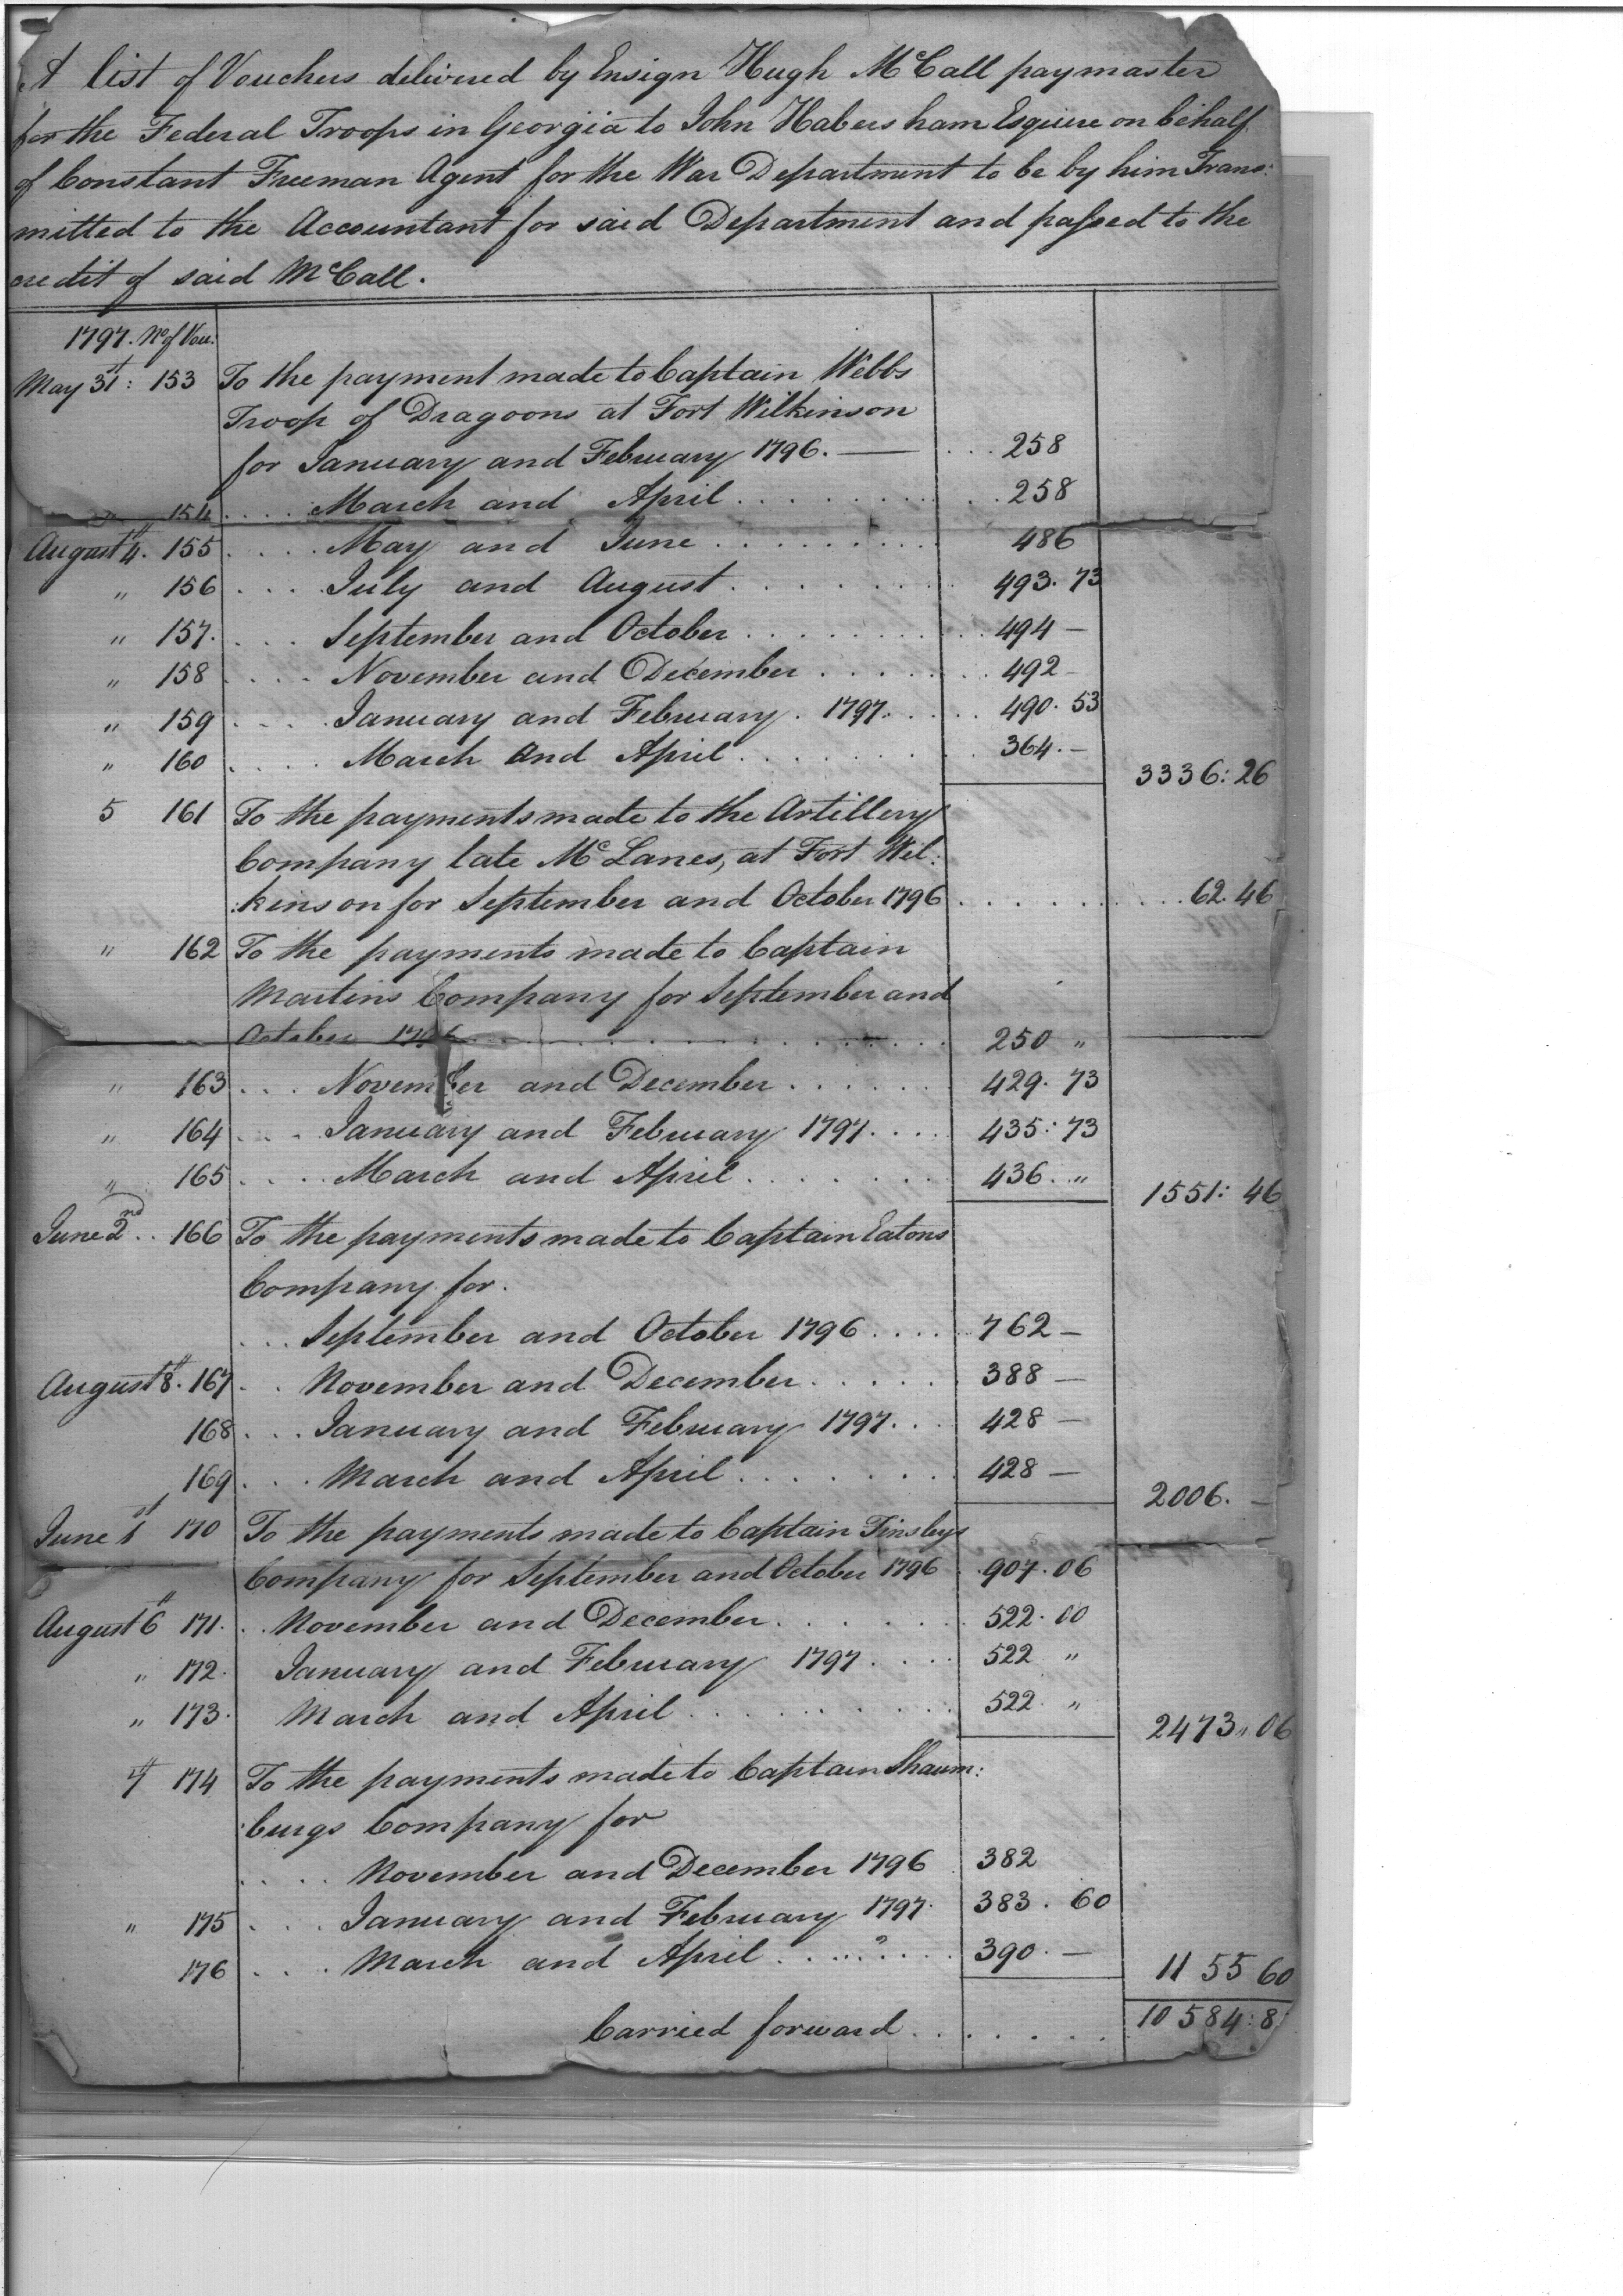 A list of Vouchers delivered by Ensign Hugh McCall paymaster
for the Federal Troops in Georgia to John Habersham Esquire on behalf
of Constant Freeman Agent for the War Department to be by him Trans:
mitted to the Accountant for said Department and passed to the
credit of said McCall.
1797. No of Vou:
May 31st: 153 To the payment made to Captain Webbs
Troop of Dragoons at Fort Wilkinson
for January and February 1796. — . . . 258
" 154 . . . . March and April . . . . . . . . . . 258
August 4th. 155 . . . . May and June . . . . . . . . . 486
" 156 . . . . July and August . . . . . . . 493. 73
" 157. . . . September and October . . . . . . . . . 494 —
" 158 . . . . November and December . . . . . . . 492 —
" 159 . . . . January and February . 1797. . . . . 490. 53
" 160 . . . . March and April . . . . . . . 364. —
3336: 26
5 161 To the payments made to the Artillery
Company late McLanes, at Fort Wil:
:kinson for September and October 1796 . . . . . . . . . 62. 46
" 162 To the payments made to Captain
Martins Company for September and
October 1796 . . . . . . . . . . . 250 "
" 163 . . . November and December . . . . . . 429. 73
" 164 . . . January and February 1797. . . . 435: 73
" 165 . . . . March and April . . . . . . . 436. "
1551: 46
June 2nd . . 166 To the payments made to Captain Eatons
Company for.
. . . September and October 1796 . . . . 762 —
August 8th. 167 . . November and December . . . . . . 388 —
168 . . . January and February 1797. . . 428 —
169 . . . March and April . . . . . . . . 428 —
2006. —
June 1st 170 To the payments made to Captain Tinsleys
Company for September and October 1796 . 907. 06
August 6th 171. . . November and December . . . . . . . 522. 00
" 172. January and February 1797 . . . . 522 "
" 173. March and April . . . . . . . . . 522. "
2473 " 06
7th 174 To the payments made to Captain Shaum:
:burgs Company for
. . . . November and December 1796 382
" 175 . . . January and February 1797. 383. 60
176 . . . March and April . . . . . . . . 390. —
1155 60
Carried forward . . . . . . . 10584: 8